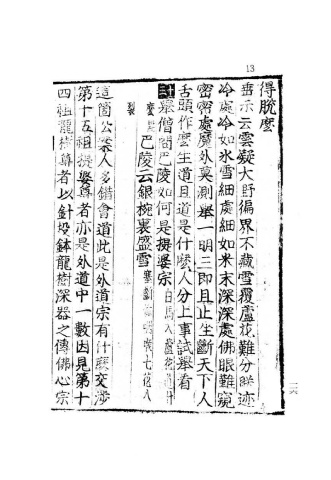 13
得脫麼
垂示云雲凝大野徧界不藏雪覆蘆花難分朕迹
冷處冷如氷雪細處細如米末深深處佛眼難窺
密密處魔外莫測舉一明三即且止坐斷天下人
舌頭作麼生道且道是什麼人分上事試舉看
十三舉僧問巴陵如何是提婆宗白馬入蘆花道什
麼
巴陵云銀椀裏盛雪塞斷咽喉七花八
裂
這箇公案人多錯會道此是外道宗有什麼交涉
第十五祖提婆尊者亦是外道中一數因見第十
四祖龍樹尊者以針投鉢龍樹深器之傳佛心宗